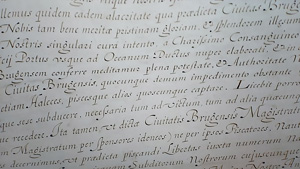 illemus quidem eadem alacritate qua prædicta Civitas Brug
Nobis tam bene merita pristinam gloriam, & splendorem illesum
Nostris singulari cura intento, a Charissimo Consanguineo
Portu usque ad Oceanum Ductus nuper elaborati, & in
Brugensem conferre meditamur plena potestate, & Authoritate N
Civitas Brugensis, quocunque demum impedimento obstante
etiam Haleces, piscesque alios quocunque captare. Licebit porro
que sese subducere, necessaria tum ad victum, tum ad alia quæcun
recedere. Ita tamen, ut dicta Civitatis Brugensis Magistrat
Magistratum per sponsores ideneos) ne per ipsos Piscatores, Naut
decernimus, ut prædicta piscandi Libertas iuxta numerum
Subditorum Nostrorum cujuscunq